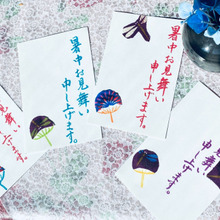 暑中お見舞い
申し上げます。
暑中お見舞い
申し上げます。
お見舞い
申し上げます。
暑中お見舞い
申し上げます。